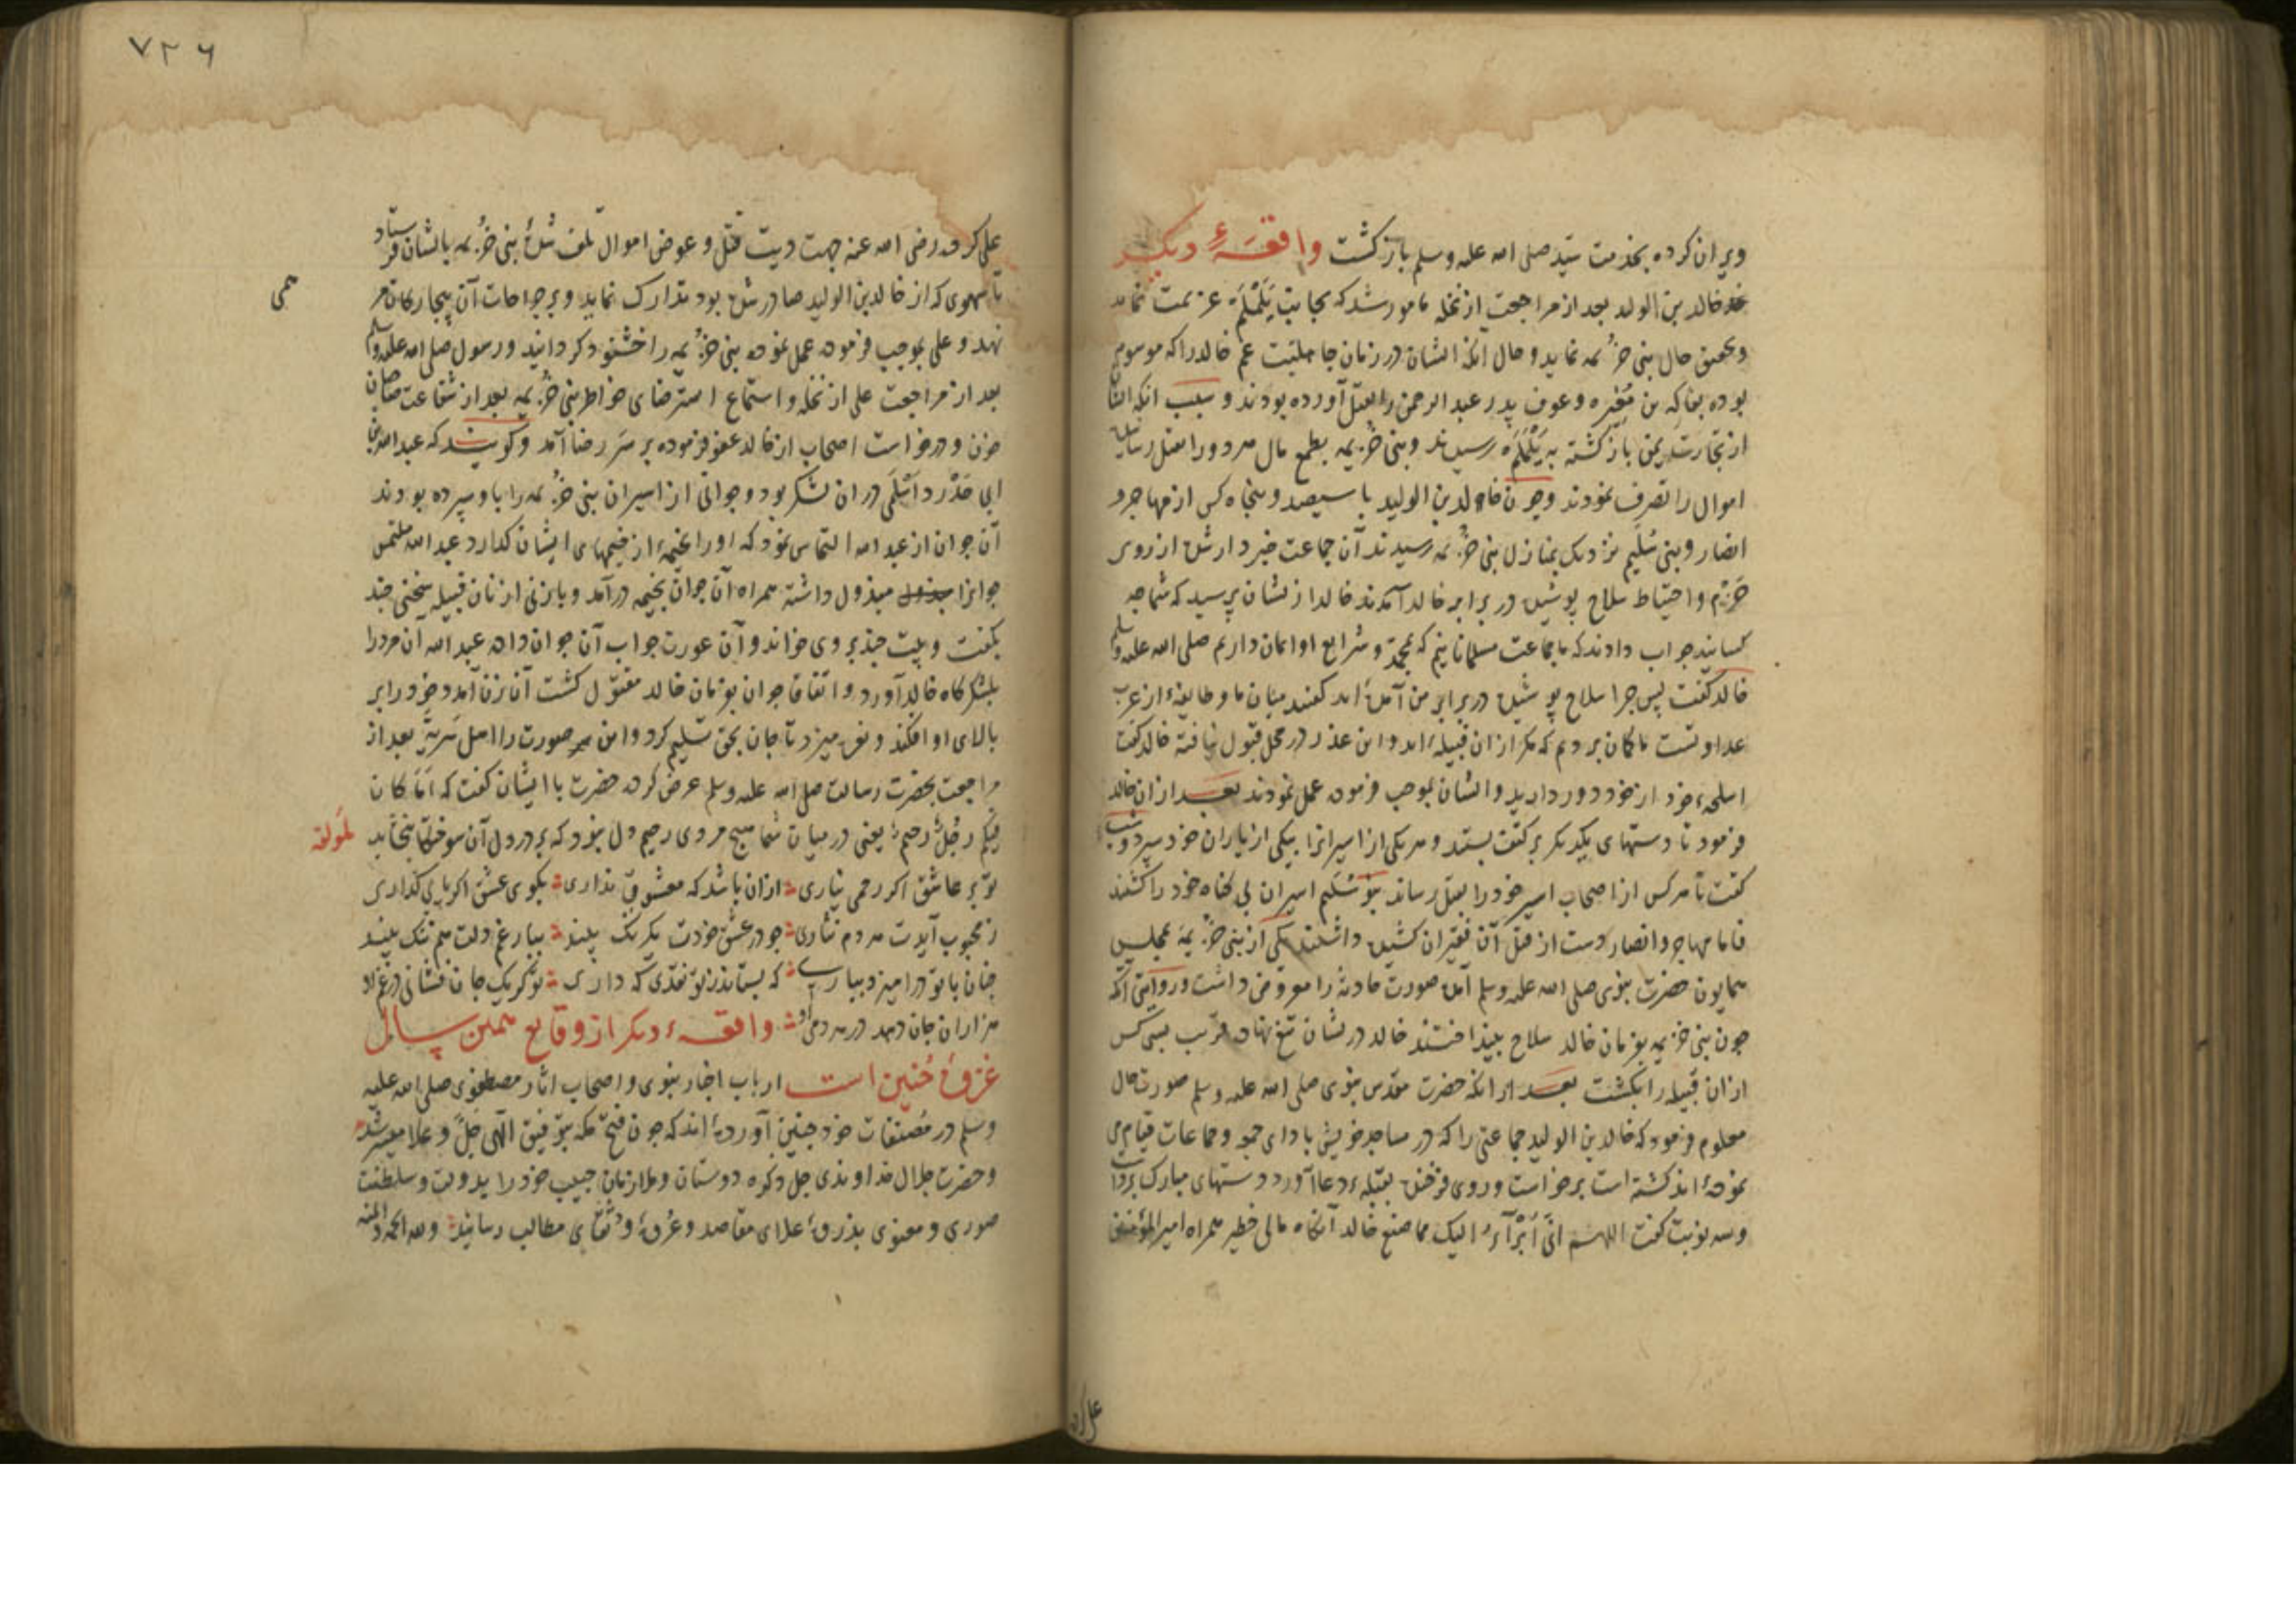 ویران کرده بخدمت سید صلی الله علیه وسلم بازکشت واقعهٔ دیکر
خالد بن الولید بعد از مراجعت از نخله مامور شد که بجانب یَلَمْلَم عزیمت نماید
وتحقیق حال بنی خزیمه نماید و حال آنکه ایشان در زمان جاهلیت عم خالد را که موسوم
بوده بفاکه بن مغیره وعوف پدر عبد الرحمن را بقتل آورده بودند و سبب انکه ایشان
از تجارت یمن بازکشته به یلملم رسیدند وبنی خزیمه بطمع مال هر دو را بقتل رسانیده
اموال را تصرف نمودند وچون خالد بن الولید با سیصد وپنجاه کس از مهاجر و
انصار وبنی سُلَیم نزدیک بمنازل بنی خزیمه رسیدند آن جماعت خبردار شده از روی
حَزْم واحتیاط سلاح پوشیده در برابر خالد آمدند خالد از ایشان پرسید که شما چه
کسانید جواب دادند که ما جماعت مسلمانانیم که بمحمد وشرایع او ایمان داریم صلی الله علیه وسلم
خالد کفت پس چرا سلاح پوشیده در برابر من آمده‌اید کفتند میان ما و طایفهٔ از عرب
عداوتست ما کمان بردیم که مکر از ان قبیله‌اید واین عذر در محل قبول نیافته خالد کفت
اسلحهٔ خود از خود دور دارید وایشان بموجب فرموده عمل نمودند بعد از ان خالد
فرمود تا دستهای یکدیکر بر کتف بستند وهر یکی از اسیرانرا بیکی از یاران خود سپرد وشب
کفت تا هر کس از اصحاب اسیر خود را بقتل رساند بنو سُلَیم اسیران بی کناه خود را کشتند
فاما مهاجر وانصار دست از قتل آن فقیران کشیده داشتند یکی از بنی خزیمه بمجلس
همایون حضرت نبوی صلی الله علیه وسلم آمده صورت حادثه را معروض داشت و روایتی آنکه
چون بنی خزیمه بفرمان خالد سلاح بینداختند خالد در ایشان تیغ نهاده قریب بسی کس
از ان قبیله را بکشت بعد از انکه حضرت مقدس نبوی صلی الله علیه وسلم صورت حال
معلوم فرمود که خالد بن الولید جماعتی را که در مساجد خویش بادای جمعه وجماعات قیام می
نموده‌اند کشته است برخواست وروی فرخنده بقبلهٔ دعا آورد ودستهای مبارک برداشت
وسه نوبت کفت اللهم انّی اَبْرَأُ الیک مما صنع خالد آنکاه مالی خطیر همراه امیر المؤمنین
علی کر
۷۲۶
علی کرده رضی الله عنه جهت دیت قتل و عوض اموال تلف شدهٔ بنی خزیمه بایشان فرستاد
تا سهوی که از خالد بن الولید صادر شده بود تدارک نماید وبر جراحات آن بیچارکان مر
همی
نهد وعلی بموجب فرموده عمل نموده بنی خزیمه را خشنود کردانید ورسول صلی الله علیه وسلم
بعد از مراجعت علی از نخله واستماع استرضای خواطر بنی خزیمه بعد از شفاعت
ودرخواست اصحاب از خالد عفو فرموده بر سَرِ رضا آمد وکویند که عبد الله بن
ابی حَدْرَد اَسْلَمی در ان لشکر بود وجوانی از اسیران بنی خزیمه را باو سپرده بودند
آن جوان از عبد الله التماس نمود که او را بخیمهٔ از خیمهای ایشان کذارد عبد الله ملتمس
جوانرا مبذول داشته همراه آن جوان بخیمه درآمد وبا زنی از زنان قبیله سخنی چند
بکفت وبیت چند بر وی خواند وآن عورت جواب آن جوان داد عبد الله آن مرد را
بلشکرکاه خالد آورد واتفاقا جوان بفرمان خالد مقتول کشت آن زن آمد وخود را بر
بالای او افکند ونعره میزد تا جان بحق تسلیم کرد واین صورت را اهل سَرِیَّه بعد از
مراجعت بحضرت رسالت صلی الله علیه وسلم عرض کرده حضرت با ایشان کفت که اَمَا کان
فیکم رجُلٌ رحیمٌ یعنی در میان شما هیچ مروی رحیم دل نبود که بر درد دل آن سوختکان ببخشاید
لمولفه
تو بر عاشق اکر رحمی نیاری از ان باشد که معشوقی نداری بکوی عشق اکر پای کذاری
ز محبوب آیدت مردم نثاری چو در عشق خودت یکرنک بیند ببار غم دلت هم تنک بیند
چنان با تو درامیزد بیاری که بستاند ز تو نقدی که داری تو کر یک جان فشانی در غم او
هزاران جان دهد در هر دمی او واقعهٔ دیکر از وقایع همین سال
غزوهٔ حُنین است ارباب اخبار نبوی واصحاب اثار مصطفوی صلی الله علیه
وسلم در مُصنفات خود چنین آورده‌اند که چون فتح مکه بتوفیق الهی جَلَّ وعلا میسر شد
وحضرت جلال خداوندی جل ذکره دوستان وملازمان حبیب خود را بدولت وسلطنت
صوری ومعنوی بذروهٔ علای مقاصد وعُروهٔ وُثقای مطالب رسانید ولله الحمد والمنه